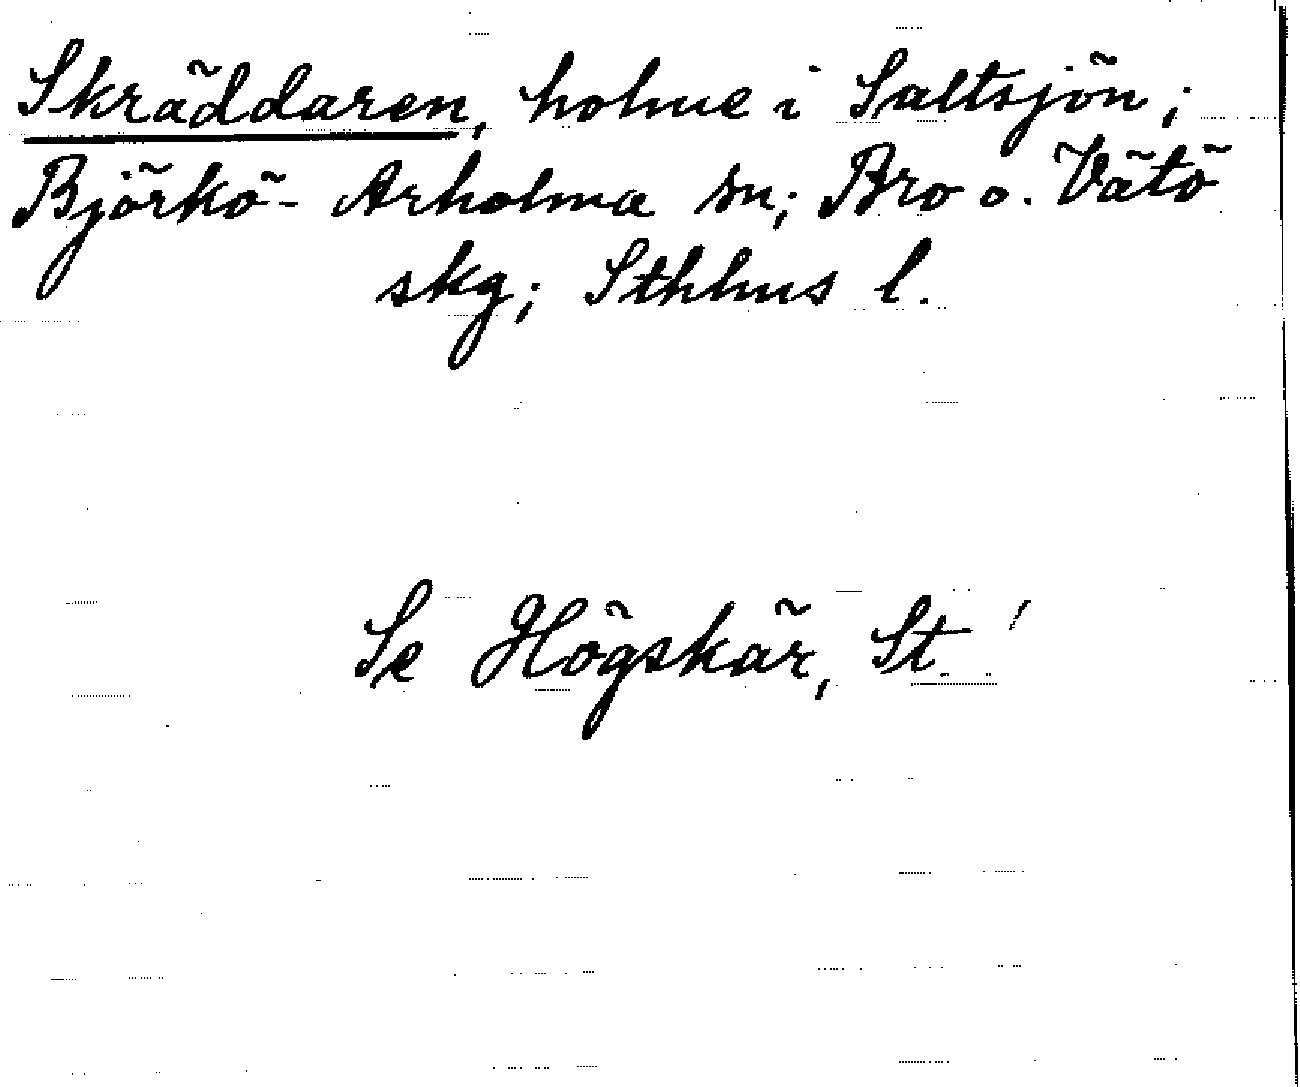 Skräddaren, holme i Saltsjön;
Björkö-Arholma sn; Bro o. Vätö
skg; Sthlms l.
Se Högskär, St. !